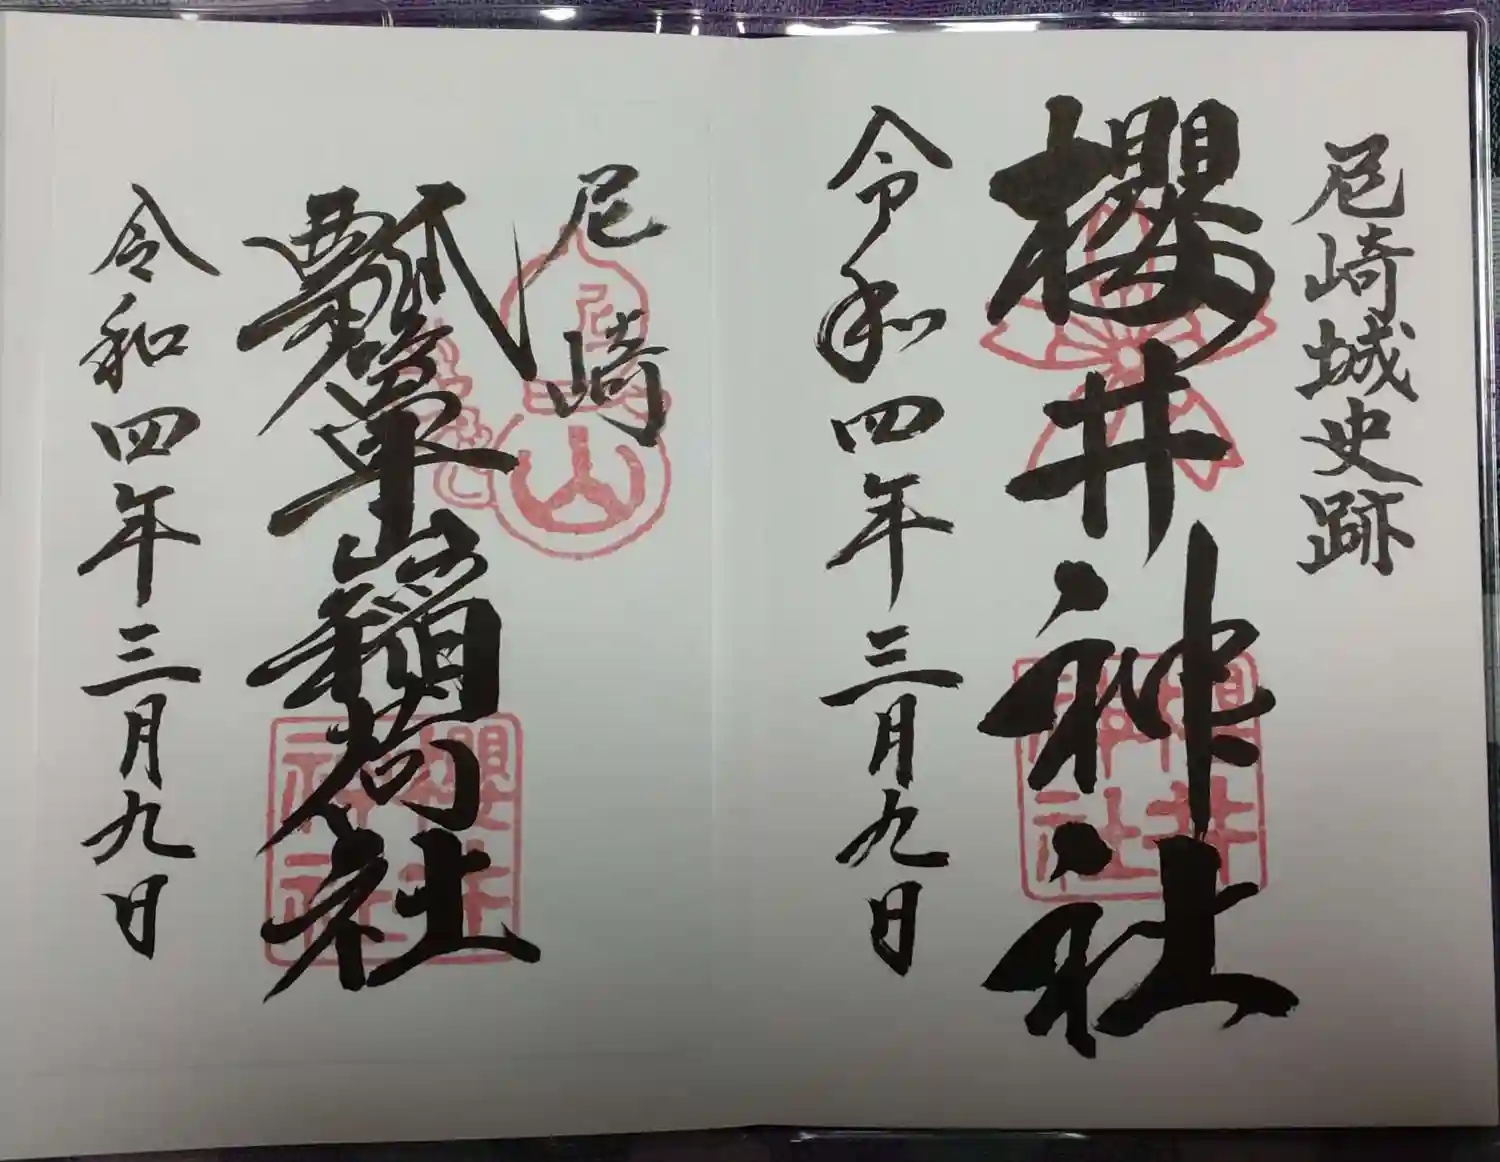 尼崎城史跡
櫻井神社
令和四年三月九日
櫻井
神社
尼崎
瓢箪山稲荷社
令和四年三月九日
櫻井
神社